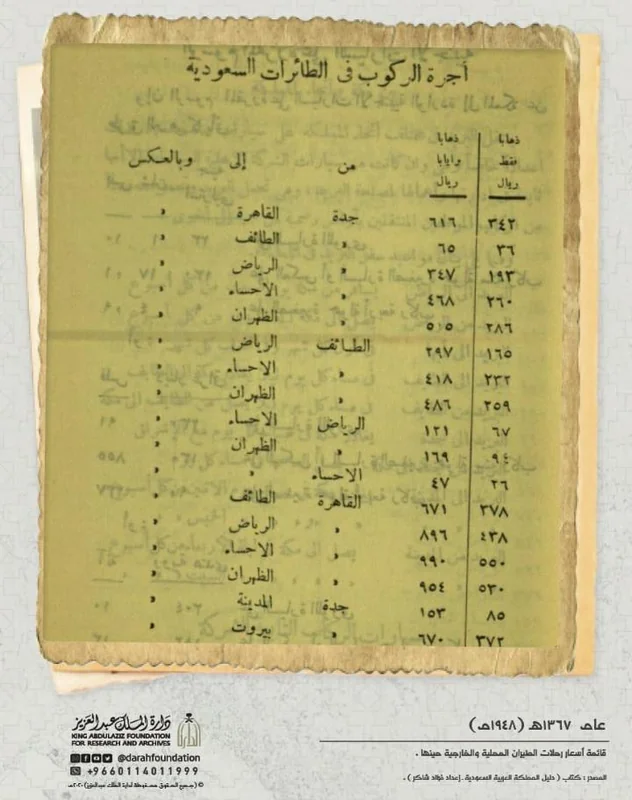 أجرة الركوب فى الطائرات السعودية
ذهابا فقط ريال ذهابا وايابا ريال من إلى وبالعكس
٣٤٢ ٦١٦ جدة القاهرة "
٣٦ ٦٥ " الطائف "
١٩٣ ٣٤٧ " الرياض "
٢٦٠ ٤٦٨ " الاحساء "
٢٨٦ ٥١٥ " الظهران "
١٦٥ ٢٩٧ الطائف الرياض "
٢٣٢ ٤١٨ " الاحساء "
٢٥٩ ٤٨٦ " الظهران "
٦٧ ١٢١ الرياض الاحساء "
٩٤ ١٦٩ " الظهران "
٢٦ ٤٧ الاحساء " "
٣٧٨ ٦٧١ القاهرة الطائف "
٤٣٨ ٨٩٦ " الرياض "
٥٥٠ ٩٩٠ " الاحساء "
٥٣٠ ٩٥٤ " الظهران "
٨٥ ١٥٣ جدة المدينة "
٣٧٢ ٦٧٠ " بيروت "
عام ١٣٦٧هـ (١٩٤٨م)
قائمة أسعار رحلات الطيران المحلية والخارجية حينها .
المصدر : كتاب ( دليل المملكة العربية السعودية . إعداد فؤاد شاكر ) .
دارة الملك عبدالعزيز
KING ABDULAZIZ FOUNDATION
FOR RESEARCH AND ARCHIVES
@darahfoundation
+966 0114011999
© (جميع الحقوق محفوظة لدارة الملك عبدالعزيز) ٢٠٢٠م